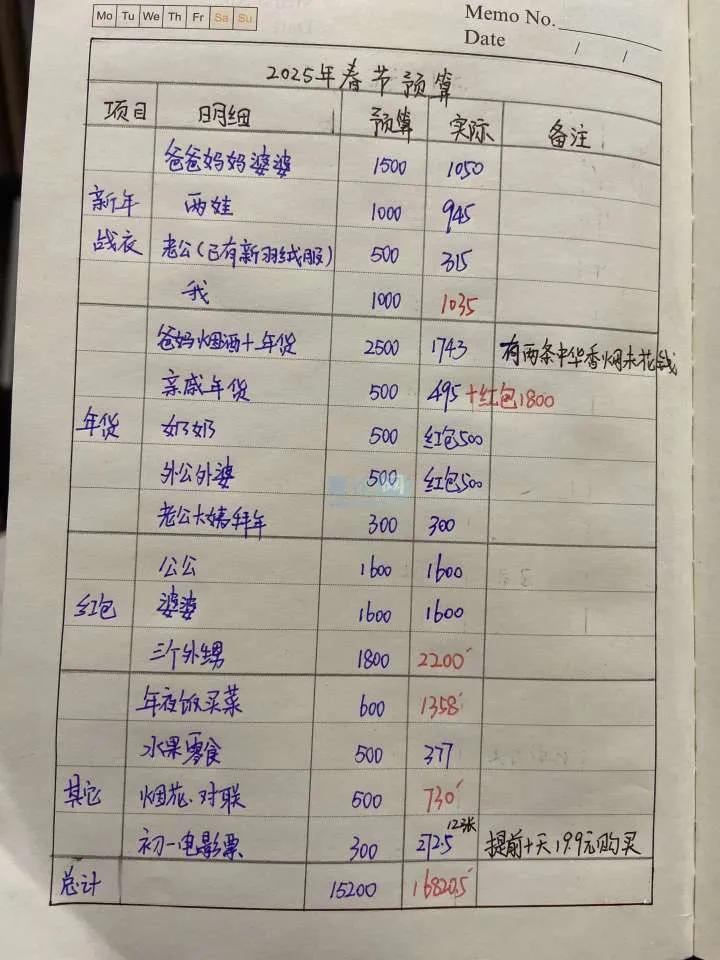 Mo Tu We Th Fr Sa Su
Memo No.
Date / /
2025年春节预算
项目 明细 预算 实际 备注
爸爸妈妈婆婆 1500 1050
新年战衣 两娃 1000 945
老公(已有新羽绒服) 500 315
我 1000 1035
爸妈烟酒+年货 2500 1743 有两条中华香烟未花钱
亲戚年货 500 495+红包1800
年货 奶奶 500 红包500
外公外婆 500 红包500
老公大姨拜年 300 300
公公 1600 1600
红包 婆婆 1600 1600
三个外甥 1800 2200
年夜饭买菜 600 1358
水果零食 500 377
其它 烟花、对联 500 730
初一电影票 300 272.5 12张 提前十天19.9元购买
总计 15200 16820.5